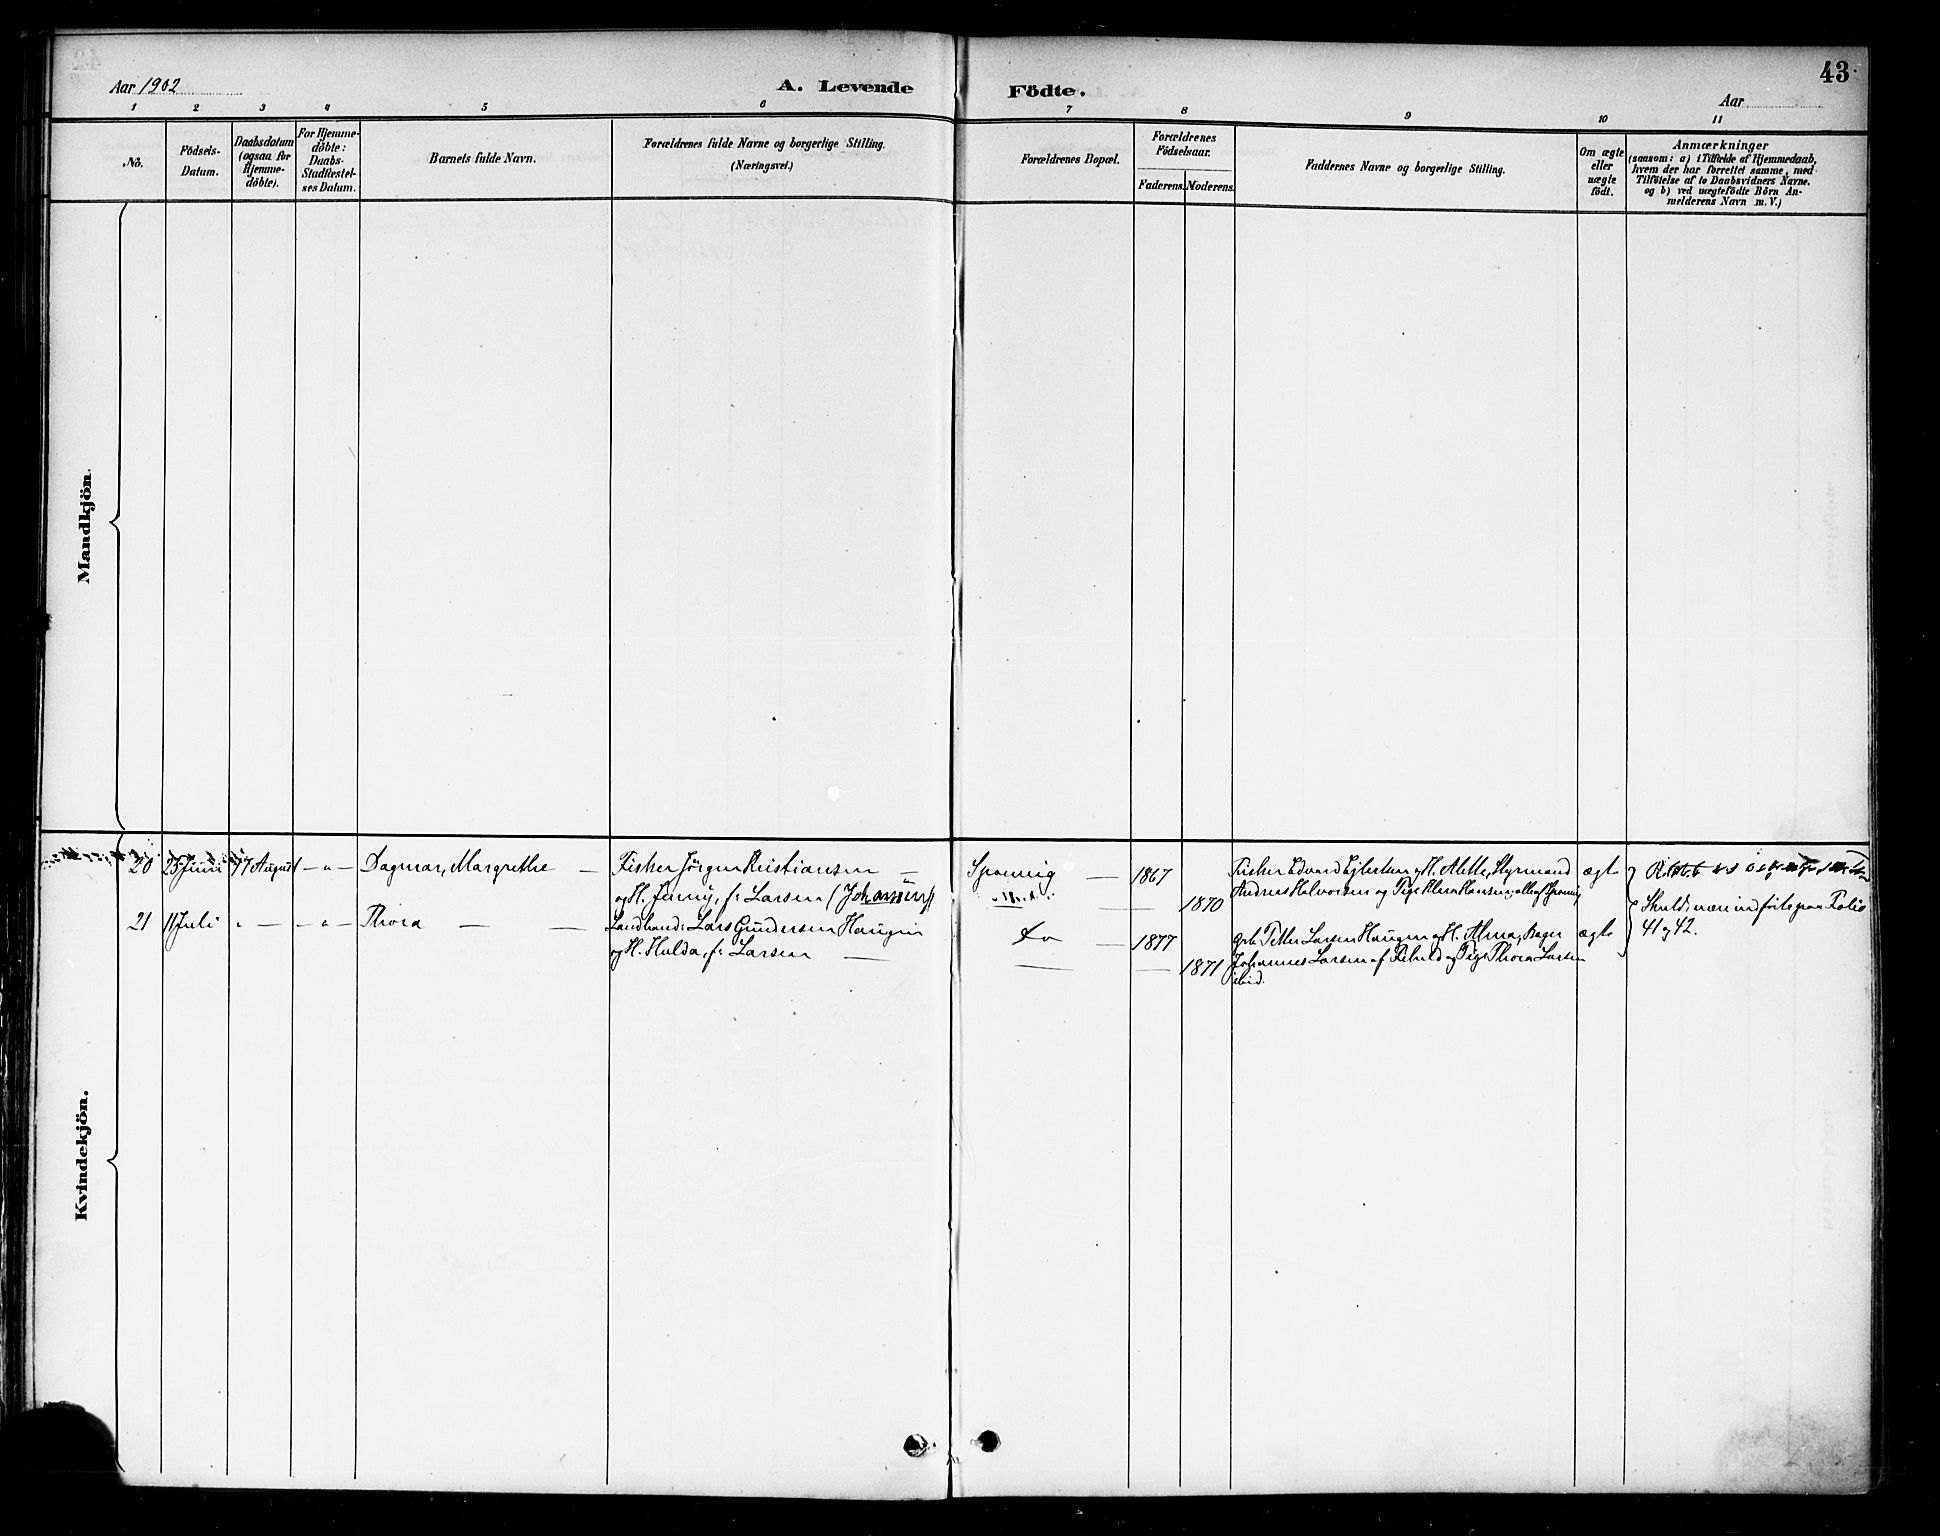 43
Aar 1902
A. Levende Födte.
Aar
1 2 3 4 5 6 7 8 9 10 11
No.
Födsels-
Datum.
Daabsdatum
(ogsaa for
Hjemme-
döbte).
For Hjemme-
döbte:
Daabs-
Stadfæstel-
ses Datum.
Barnets fulde Navn.
Forældrenes fulde Navne og borgerlige Stilling.
(Næringsvei.)
Forældrenes Bopæl.
Forældrenes
Födselsaar.
Faderens. Moderens.
Faddernes Navne og borgerlige Stilling.
Om ægte
eller
uægte
födt.
Anmærkninger
(saasom: a) i Tilfælde af Hjemmedaab,
hvem der har forrettet samme, med
Tilföielse af to Daabsvidners Navne.
og b) ved uægtefödte Börn An-
melderens Navn m. V.)
Mandkjön.
Kvindekjön.
20 25 Juni 17 August — " — Dagmar, Margrethe — Fisker Jörgen Kristiansen — 1867 Fisker Edvard Ejlertsen og H. Alette, Styrmand ægte
og H. Jenny, f: Larsen (Johansen) — 1870 Andreas Halvorsen og Pige Klara Hansen, alle af
21 11 Juli " — — " — Thora — — Landhand: Lars Gundersen Haugen Do — 1877 Petter Larsen Haugen og H. Alma, Bager ægte
og H. Hulda, f: Larsen — — — 1871 Johannes Larsen af og Pige Thora Larsen
ibid.
Skulde være indförte paa Folio
41 og 42.